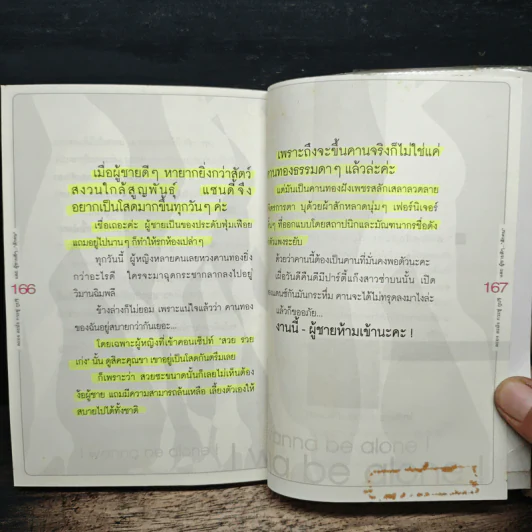 เมื่อผู้ชายดีๆ หายากยิ่งกว่าสัตว์
สงวนใกล้สูญพันธุ์ แซนดี้จึง
อยากเป็นโสดมากขึ้นทุกวันๆ ค่ะ
เชื่อเถอะค่ะ ผู้ชายเป็นของประดับฟุ่มเฟือย
แถมอยู่ไปนานๆ ก็ทำให้รกห้องเปล่าๆ
ทุกวันนี้ ผู้หญิงหลายคนเลยหวงคานทองยิ่ง
กว่าอะไรดี ใครจะมาฉุดกระชากลากลงไปอยู่
วิมานฉิมพลี
ข้างล่างก็ไม่ยอม เพราะแน่ใจแล้วว่า คานทอง
ของฉันอยู่สบายกว่ากันเยอะ...
โดยเฉพาะผู้หญิงที่เข้าคอนเซ็ปท์ 'สวย รวย
เก่ง' นั้น ดูสิคะคุณขา เขาอยู่เป็นโสดกันตรึมเลย
ก็เพราะว่า สวยซะขนาดนั้นก็เลยไม่เห็นต้อง
ง้อผู้ชาย แถมมีความสามารถล้นเหลือ เลี้ยงตัวเองให้
สบายไปได้ทั้งชาติ
166
I wanna be alone !
เพราะถึงจะขึ้นคานจริงก็ไม่ใช่แค่
คานทองธรรมดาๆ แล้วล่ะค่ะ
แต่มันเป็นคานทองฝังเพชรสลักเสลาลวดลาย
ตรการตา บุด้วยผ้าสักหลาดนุ่มๆ เฟอร์นิเจอร์
ที่ออกแบบโดยสถาปนิกและมัณฑนากรชื่อดัง
ด้วยว่าคานนี้ต้องเป็นคานที่มั่นคงพอตัวนะคะ
เมื่อวันดีคืนดีมีปาร์ตี้แก๊งสาวซ่าบนนั้น เปิด
แดนซ์กันมันกระหึ่ม คานจะได้ไม่ทรุดลงมาไงล่ะ
แล้วก็ขออภัย...
งานนี้ - ผู้ชายห้ามเข้านะคะ !
167
wanna be alone !